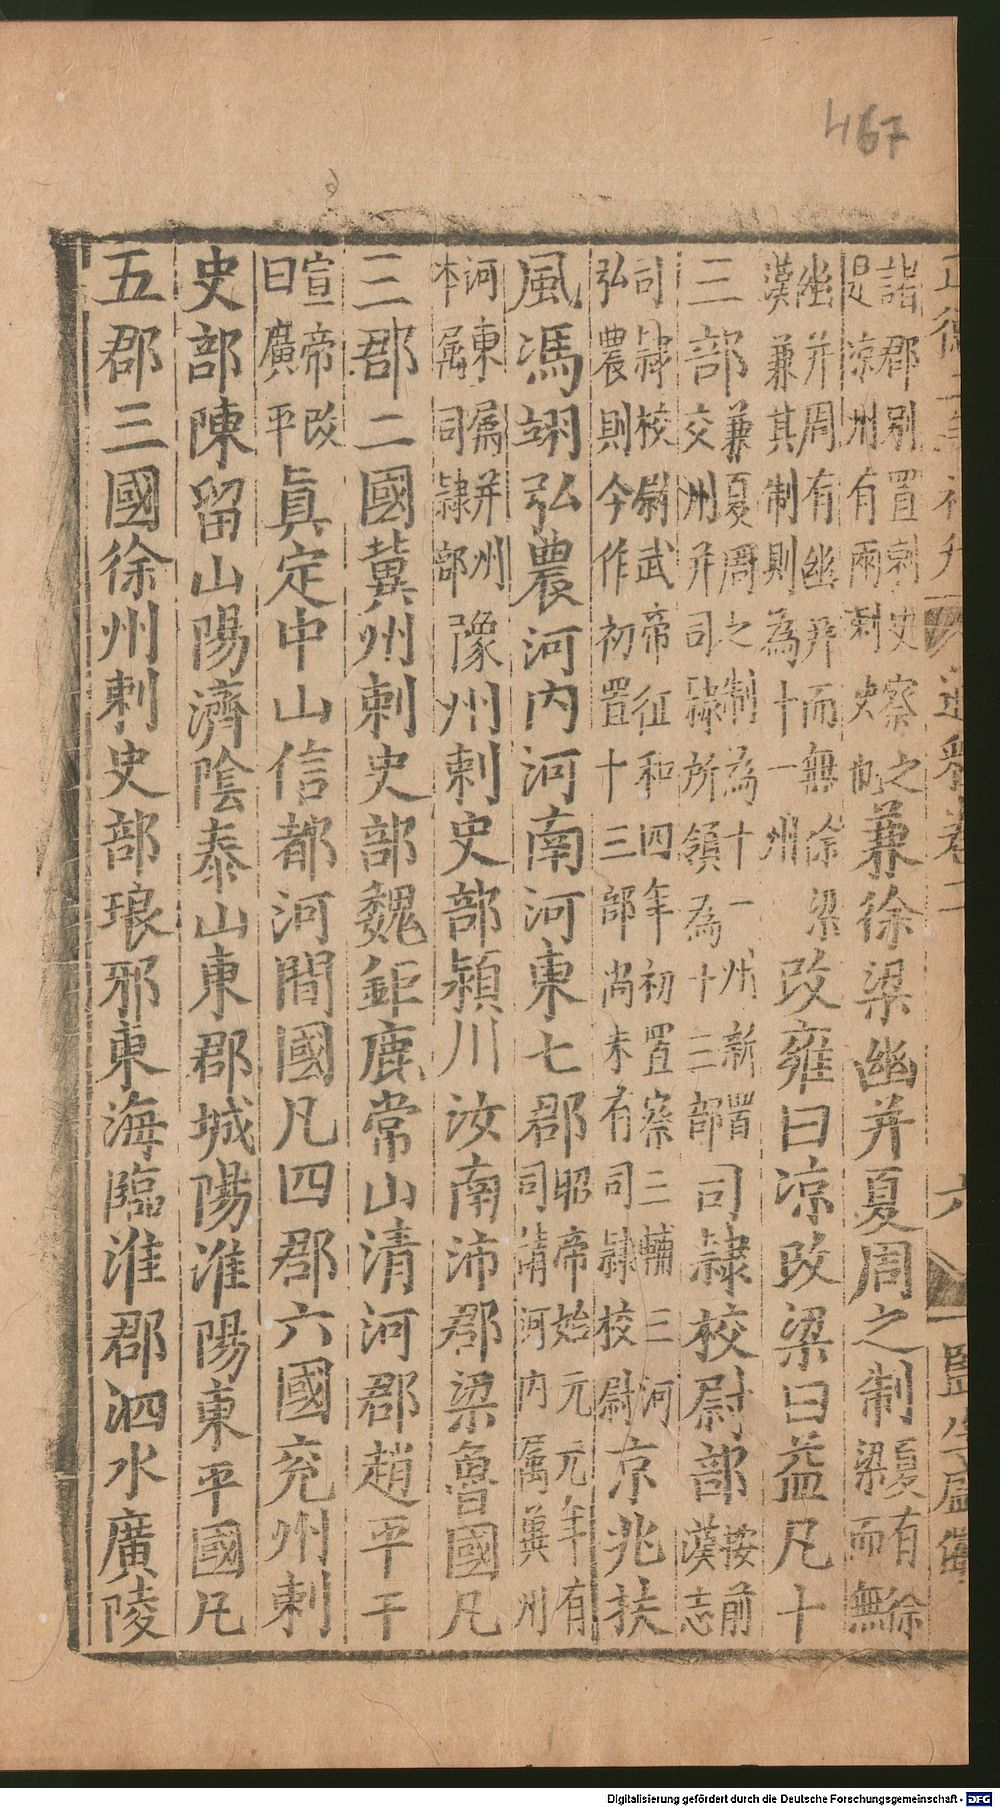 467
諸郡別置刺史察之
是涼州有兩刺史
兼徐梁幽并夏周之制
夏有徐
梁而無
幽并周有幽并而無徐梁
漢兼其制則為十一州
改雍曰凉改梁曰益凡十
三部
兼夏周之制為十一州新置
交州并司隸所領為十三部
司隸校尉部
按前
漢志
司隸校尉武帝征和四年初置察三輔三河
弘農則今作初置十三部尚未有司隸校尉
京兆扶
風馮翊弘農河内河南河東七郡
昭帝始元元年有
司隸河内属冀州
河東属并州
本属司隸部
豫州刺史部潁川汝南沛郡梁魯國凡
三郡二國冀州刺史部魏鉅鹿常山清河郡趙平干
宣帝改
曰廣平
真定中山信都河間國凡四郡六國兖州刺
史部陳留山陽濟陰泰山東郡城陽淮陽東平國凡
五郡三國徐州刺史部琅邪東海臨淮郡泗水廣陵
Digitalisierung gefördert durch die Deutsche Forschungsgemeinschaft - DFG